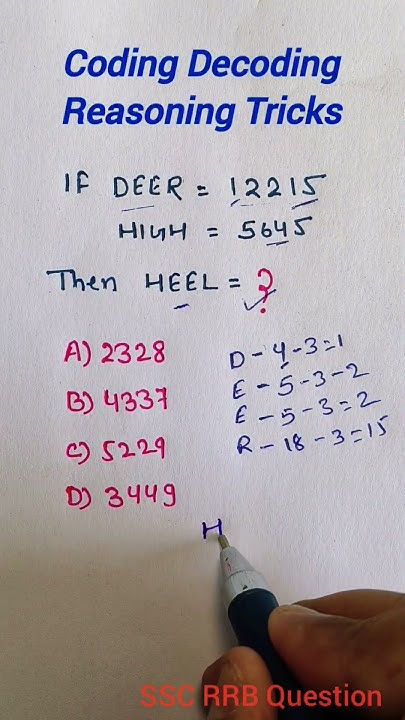 Coding Decoding
Reasoning Tricks
IF DEER = 12215
HIGH = 5645
Then HEEL = ?
A) 2328
B) 4337
C) 5229
D) 3449
D - 4 - 3 = 1
E - 5 - 3 - 2
E - 5 - 3 = 2
R - 18 - 3 = 15
H
SSC RRB Question